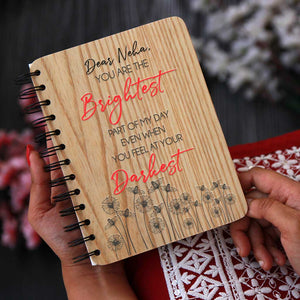 Dear Neha,
YOU ARE THE
Brightest
PART OF MY DAY
EVEN WHEN
YOU FEEL AT YOUR
Darkest